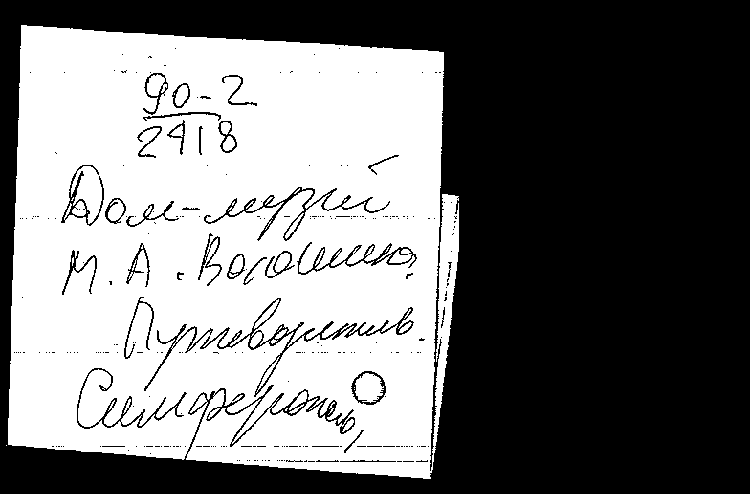 90-2
2418
Дом-музей
М. А. Волошина.
Путеводитель.
Симферополь,